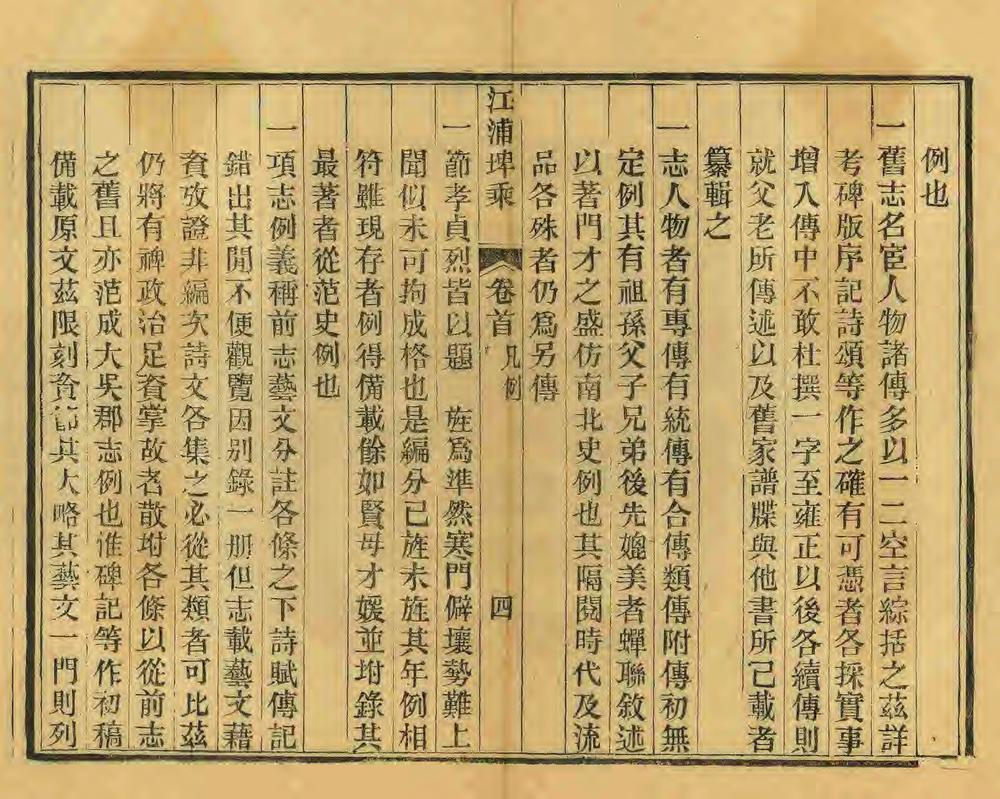 例也
一舊志名宦人物諸傳多以一二空言綜括之茲詳
考碑版序記詩頌等作之確有可憑者各採實事
增入傳中不敢杜撰一字至雍正以後各續傳則
就父老所傳述以及舊家譜牒與他書所已載者
纂輯之
一志人物者有專傳有統傳有合傳類傳附傳初無
定例其有祖孫父子兄弟後先媲美者蟬聯敘述
以著門才之盛仿南北史例也其隔閱時代及流
品各殊者仍爲另傳
江浦埤乘 卷首 凡例 四
一節孝貞烈皆以題 旌爲準然寒門僻壤勢難上
聞似未可拘成格也是編分已旌未旌其年例相
符雖現存者例得備載餘如賢母才媛並坿錄其
最著者從范史例也
一項志例義稱前志藝文分註各條之下詩賦傳記
錯出其閒不便觀覽因别錄一册但志載藝文藉
資攷證非編次詩文各集之必從其類者可比茲
仍將有裨政治足資掌故者散坿各條以從前志
之舊且亦范成大吳郡志例也惟碑記等作初稿
備載原文茲限刻資節其大略其藝文一門則列